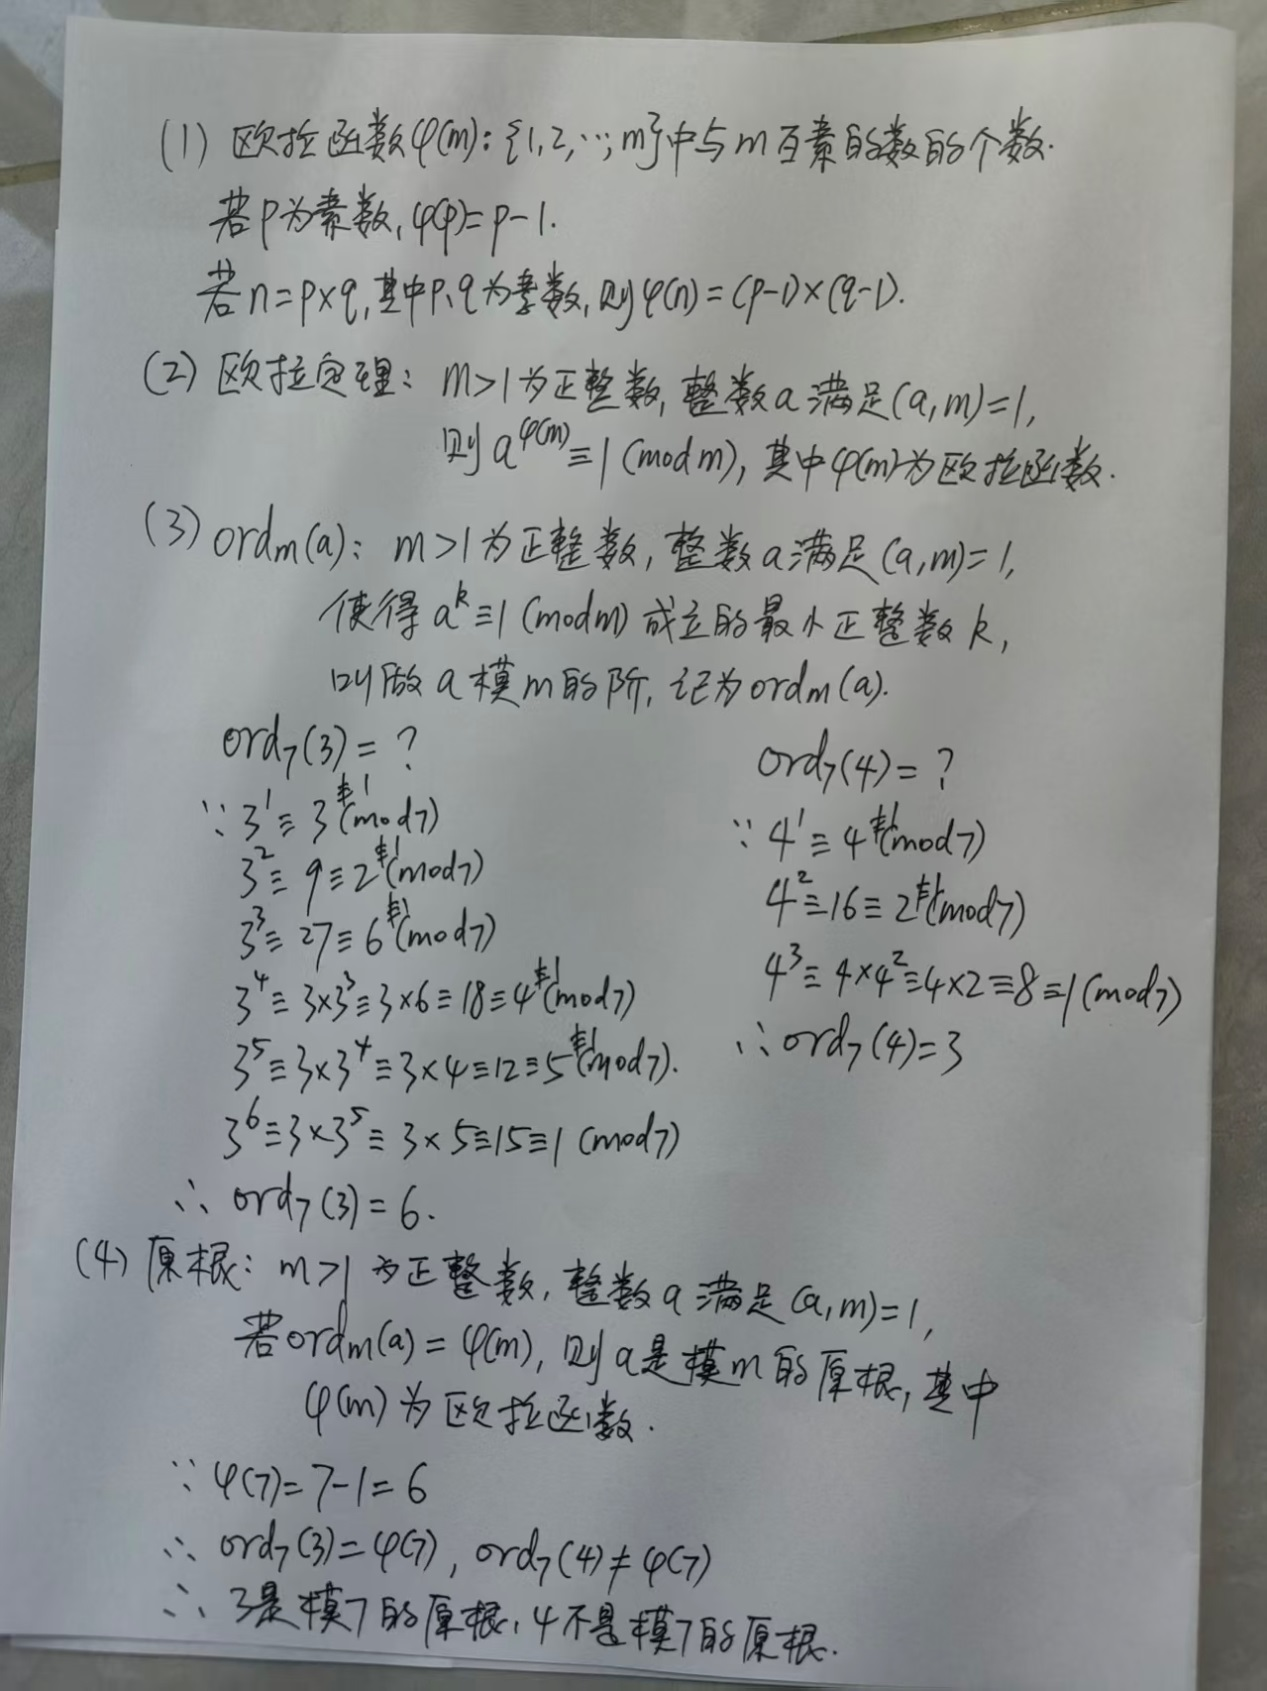 (1) 欧拉函数φ(m): {1,2,…,m}中与m互素的数的个数.
若p为素数, φ(p)=p-1.
若n=p×q, 其中p、q为素数, 则φ(n)=(p-1)×(q-1).
(2) 欧拉定理: m>1为正整数, 整数a满足(a,m)=1,
则a^φ(m)≡1(mod m), 其中φ(m)为欧拉函数.
(3) ordₘ(a): m>1为正整数, 整数a满足(a,m)=1,
使得a^k≡1(mod m)成立的最小正整数k,
叫做a模m的阶, 记为ordₘ(a).
ord₇(3)=?
∵ 3¹≡3≢1(mod7)
3²≡9≡2≢1(mod7)
3³≡27≡6≢1(mod7)
3⁴≡3×3³≡3×6≡18≡4≢1(mod7)
3⁵≡3×3⁴≡3×4≡12≡5≢1(mod7).
3⁶≡3×3⁵≡3×5≡15≡1(mod7)
∴ ord₇(3)=6.
ord₇(4)=?
∵ 4¹≡4≢1(mod7)
4²≡16≡2≢1(mod7)
4³≡4×4²≡4×2≡8≡1(mod7)
∴ ord₇(4)=3
(4) 原根: m>1为正整数, 整数a满足(a,m)=1,
若ordₘ(a)=φ(m), 则a是模m的原根, 其中
φ(m)为欧拉函数.
∵ φ(7)=7-1=6
∴ ord₇(3)=φ(7), ord₇(4)≠φ(7)
∴ 3是模7的原根, 4不是模7的原根.